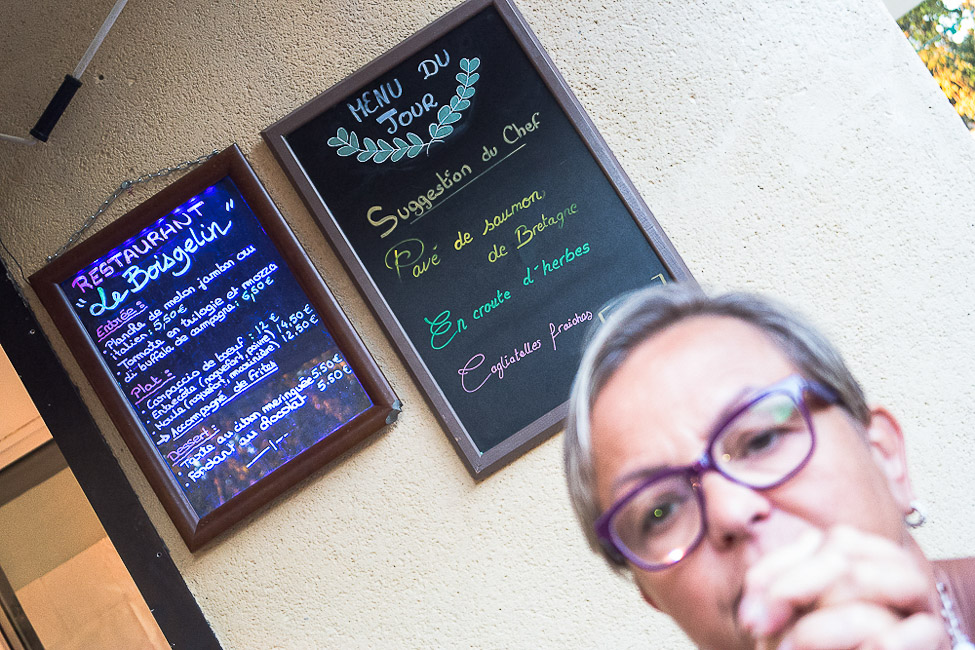 RESTAURANT
"Le Boisgelin"
Entrée :
• Planche de melon jambon cru
italien : 5,50€
• Tomate en trilogie et mozza
di buffala de campagne : 6,50€
Plat :
• Carpaccio de boeuf : 12 €
• Entrecôte (roquefort, poivre) 14.50€
• Moule (roquefort, marinière) 12.50€
→ Accompagné de frites
Dessert :
• Tarte au citron meringuée 5.50€
• Fondant au chocolat 5.50€
MENU DU
JOUR
Suggestion du Chef
Pavé de saumon
de Bretagne
En croute d'herbes
Tagliatelles fraiches